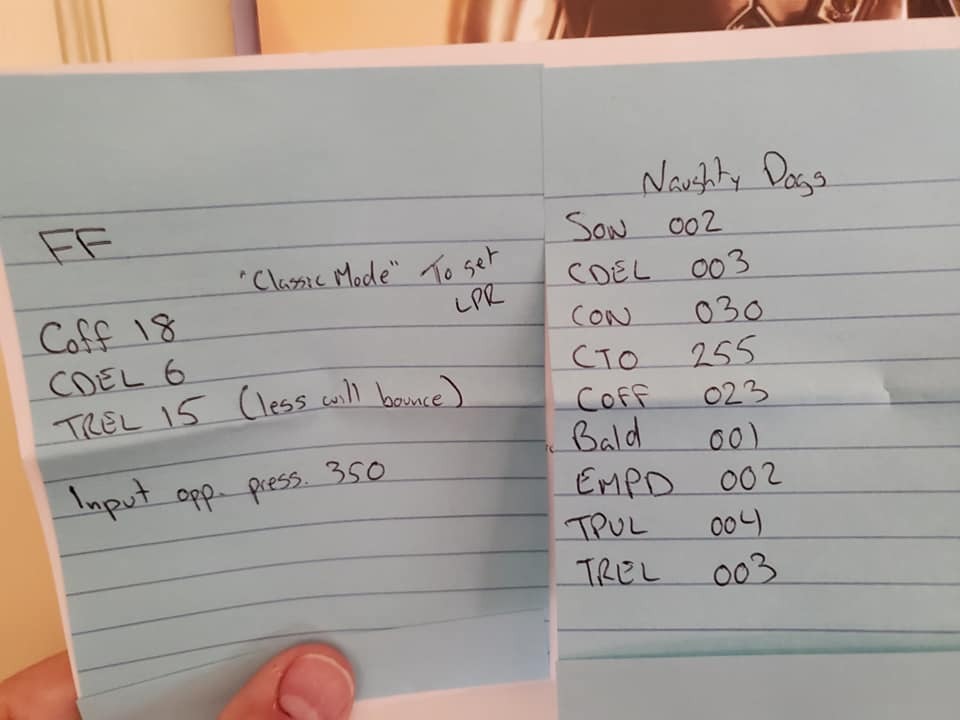 FF
"Classic Mode" To set
LPR
Coff 18
CDEL 6
TREL 15 (less will bounce)
Input opp. press. 350
Naughty Dogs
SON 002
CDEL 003
CON 030
CTO 255
COFF 023
Bald 001
EMPD 002
TPUL 004
TREL 003